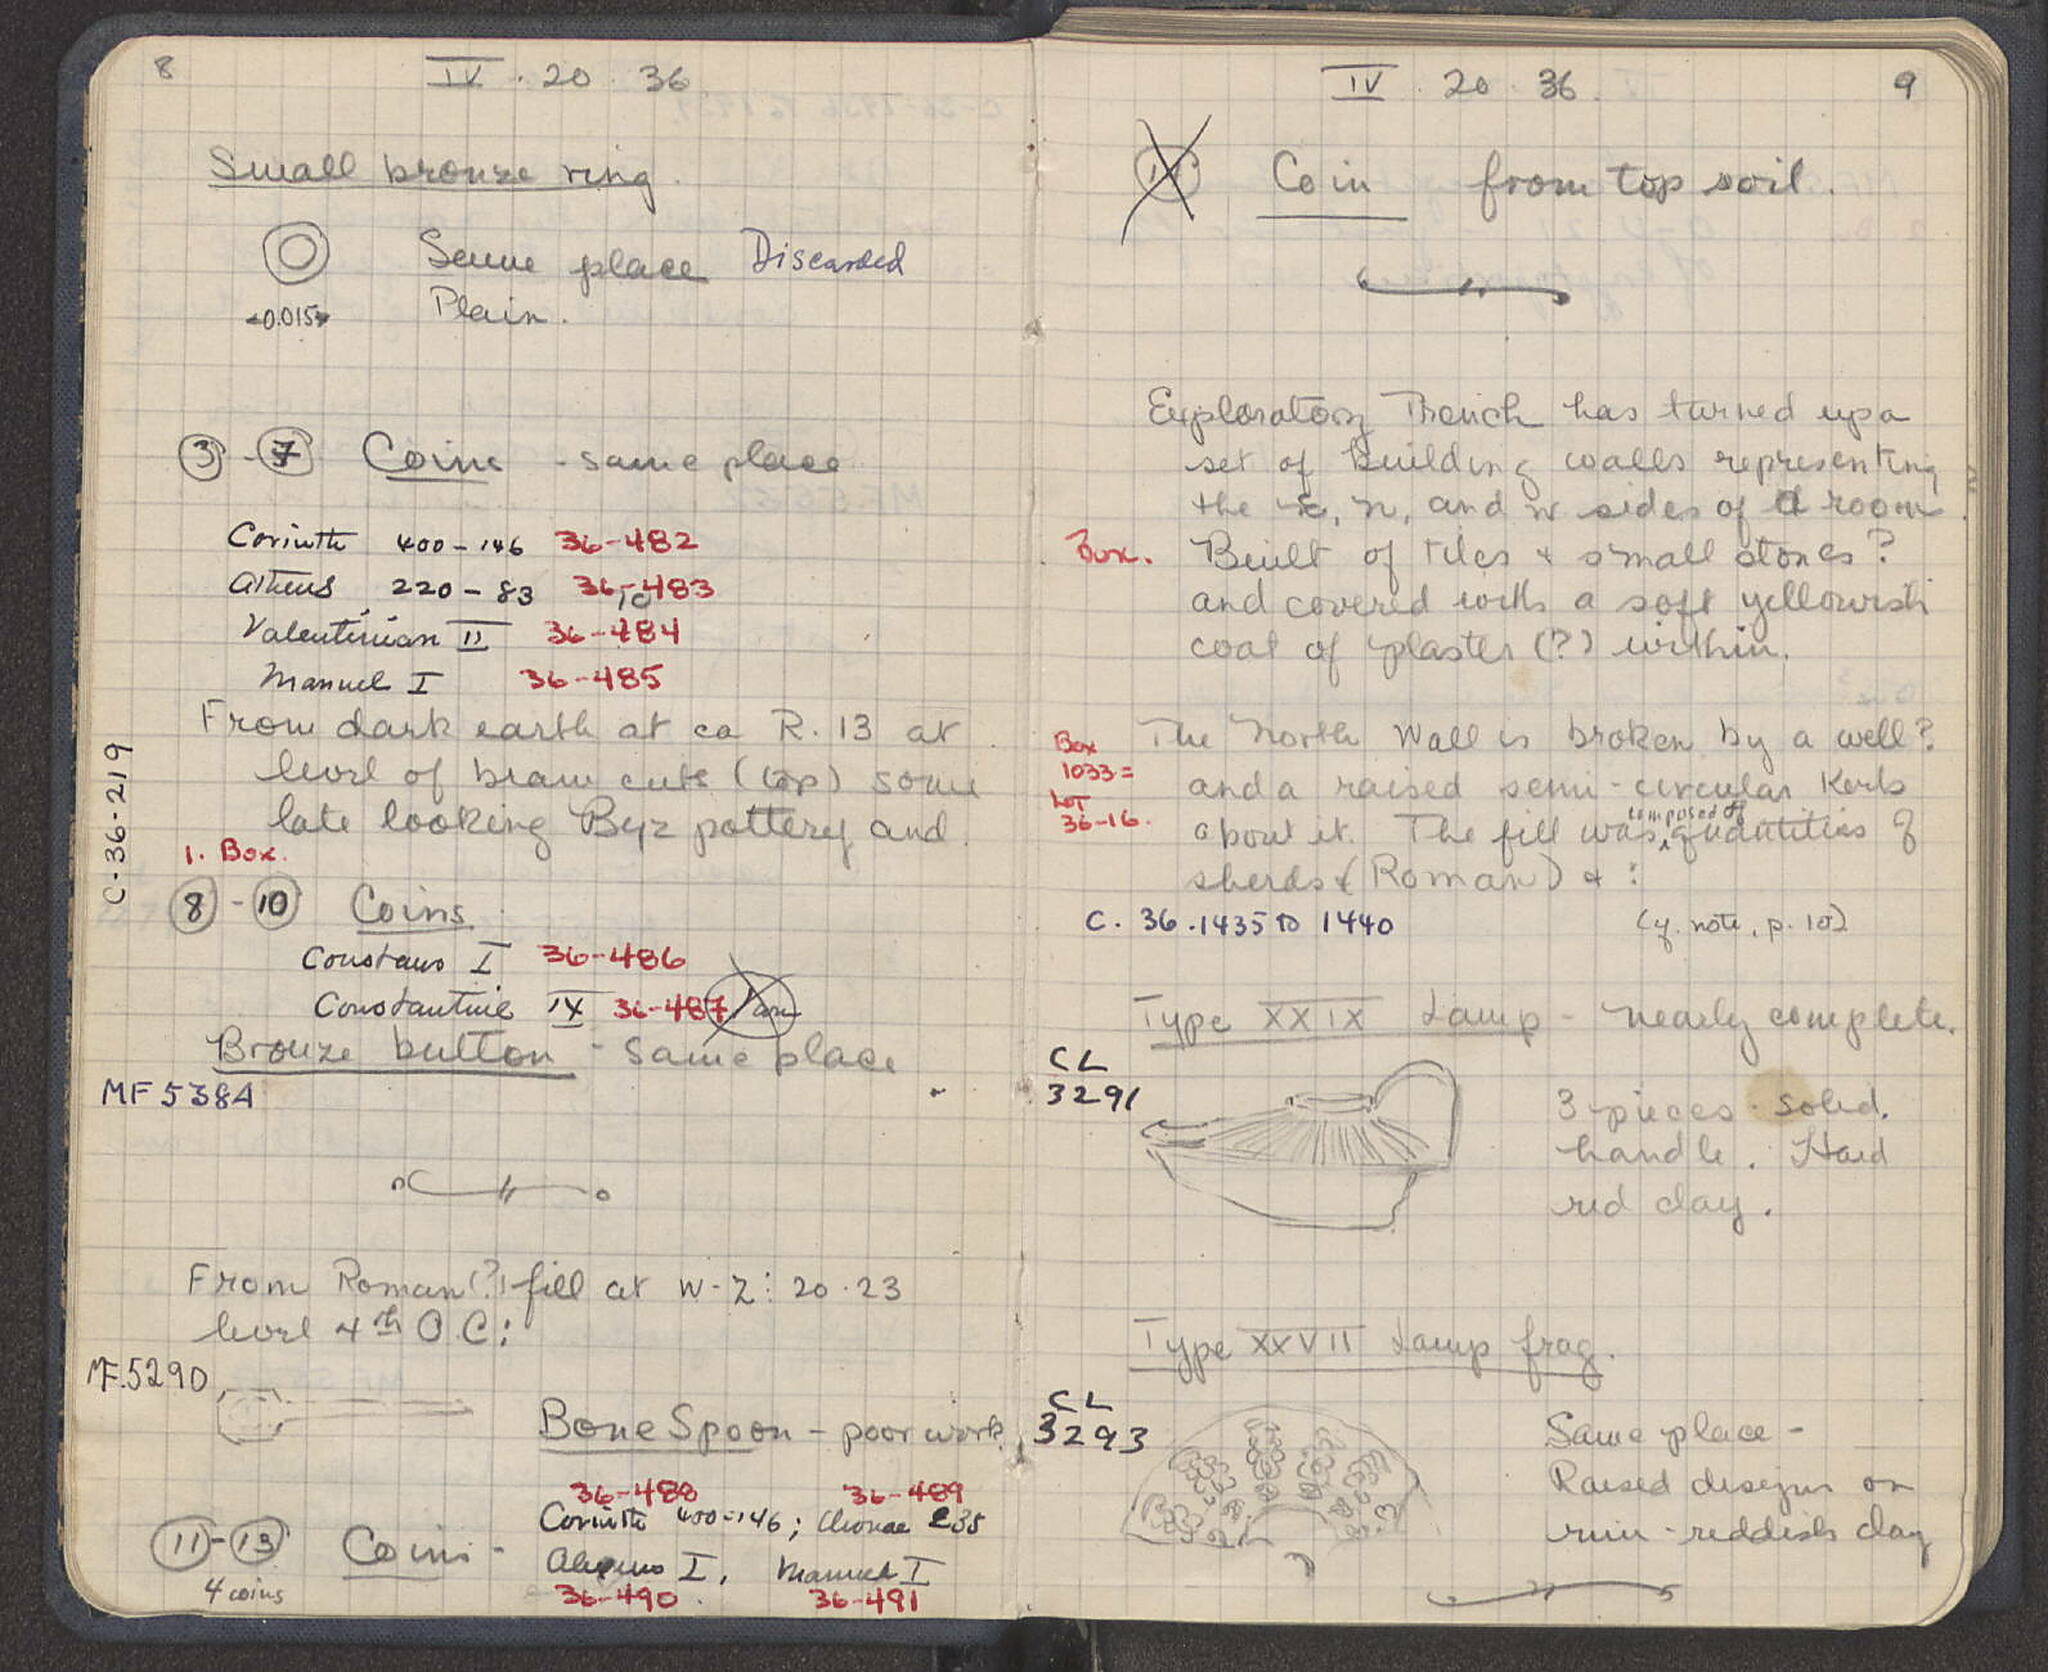 8
IV . 20 . 36
Small bronze ring.
Same place Discarded
0.015
Plain.
3 - 7 Coins - same place
Corinth 400-146 36-482
Athens 220-83 36-483
Valentinian II 36-484
Manuel I 36-485
From dark earth at ca R. 13 at
level of beam cuts (top) some
late looking Byz pottery and
C-36-219
1. Box.
8 - 10 Coins
Constans I 36-486
Constantine IX 36-487
Bronze button - same place
MF 5384
From Roman(?) fill at W-Z: 20-23
level 4th O.C:
MF.5290
Bone Spoon - poor work
36-488 36-489
11 - 13 Coins - Corinth 400-146; Cleonae
4 coins
Alexius I, Manuel I
36-490 36-491
IV . 20 . 36.
9
Coin from top soil.
Exploratory Trench has turned up a
set of building walls representing
the n, and w sides of a room.
Box. Built of tiles + small stones?
and covered with a soft yellowish
coat of plaster (?) within.
The North Wall is broken by a well?
Box
1033 =
Lot
36-16.
and a raised semi-circular kerb
about it. The fill was composed of quantities of
sherds (Roman) + :
C. 36.1435 to 1440 (cf. note, p. 10)
Type XXIX Lamp - nearly complete.
CL
3291
3 pieces. Solid.
handle. Hard
red clay.
Type XXVII Lamp frag.
CL
3293
Same place -
Raised designs on
rim - reddish clay